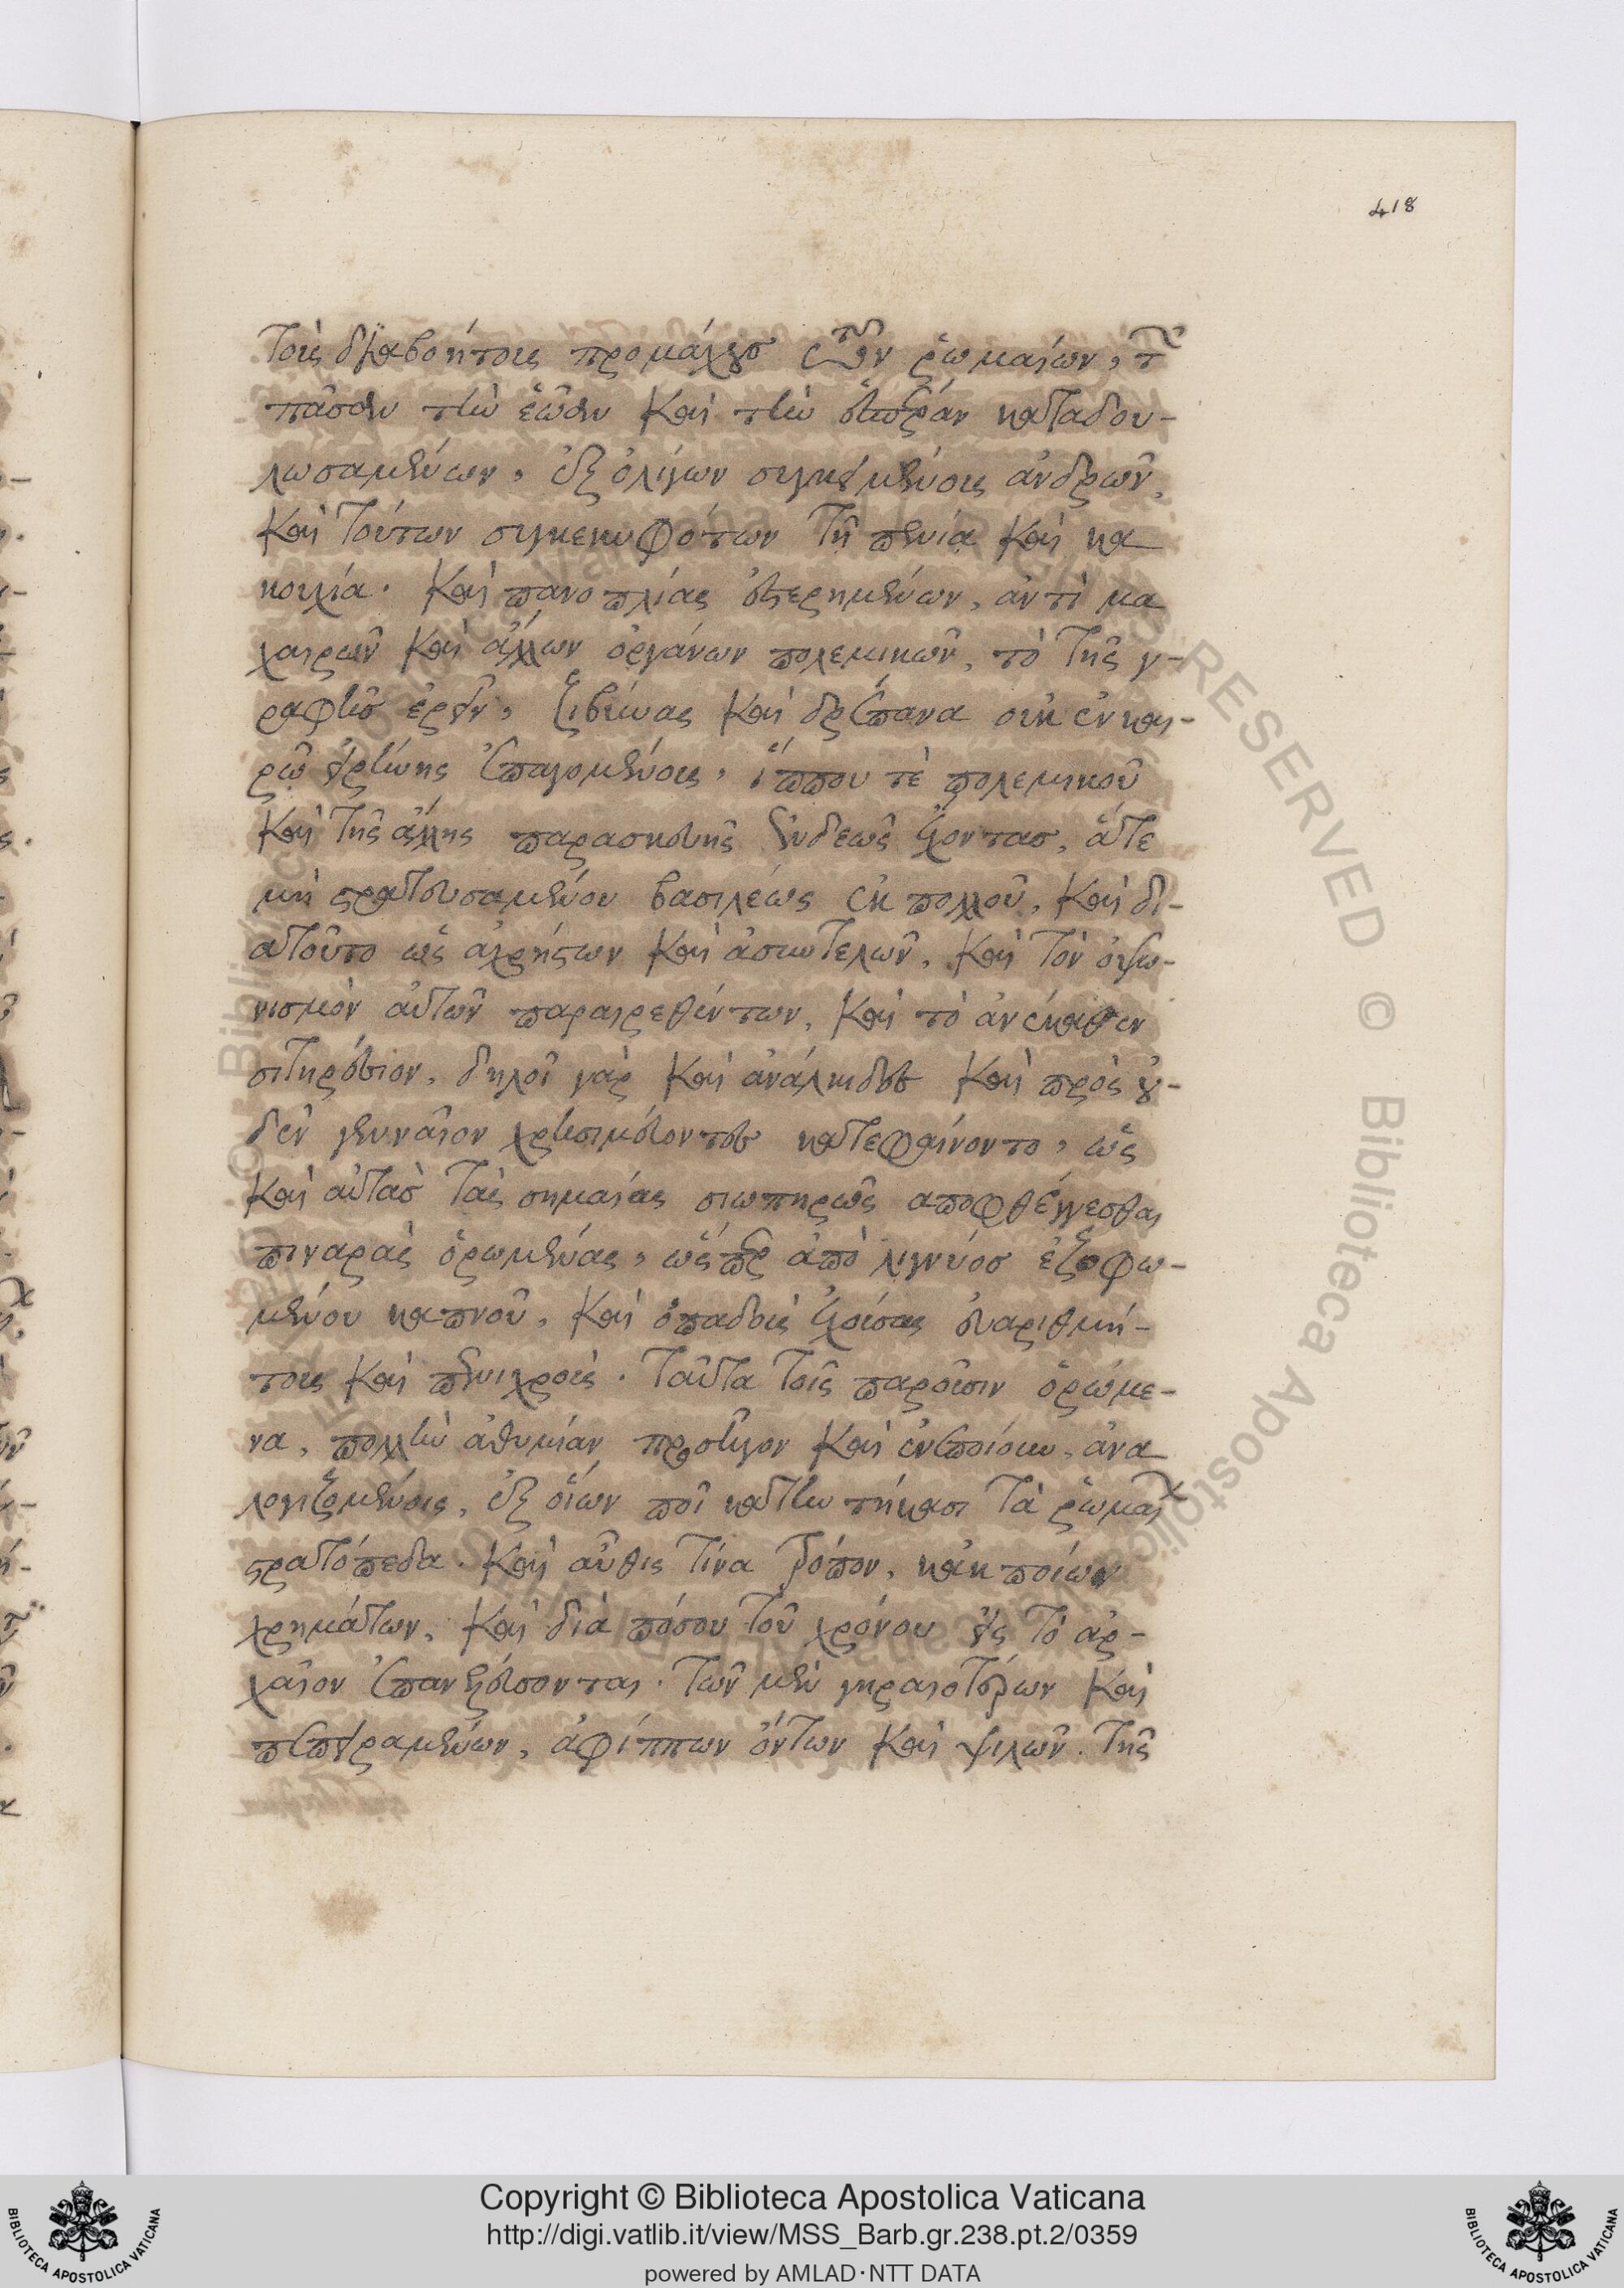 418
τοὺς διαβοήτους προμάχους τῶν ῥωμαίων, τ
πᾶσαν τὴν ἑῴαν καὶ τὴν ἑσπέραν καταδου-
λωσαμένων, ἐξ ὀλίγων συγκειμένους ἀνδρῶν,
καὶ τούτων συγκεκυφότων τῇ πενίᾳ καὶ κα
κουχίᾳ. καὶ πανοπλίας ἐστερημένων, ἀντὶ μα
χαιρῶν καὶ ἄλλων ὀργάνων πολεμικῶν, τὸ τῆς γ-
ραφῆς ἐρεῖν, ζιβύνας καὶ δρέπανα οὐκ ἐν και-
ρῷ εἰρήνης ἐπαγομένους, ἵππου τὲ πολεμικοῦ
καὶ τῆς ἄλλης παρασκευῆς ἐνδεῶς ἔχοντας, ἅτε
μὴ στρατευσαμένου βασιλέως ἐκ πολλοῦ, καὶ δι-
ατοῦτο ὡς ἀχρήστων καὶ ἀσυντελῶν, καὶ τὸν ὀψω-
νισμὸν αὐτῶν παραιρεθέντων, καὶ τὸ ἀνέκαθεν
σιτηρέσιον, δηλοῖ γὰρ καὶ ἀνάλκιδες καὶ πρὸς οὐ-
δὲν γενναῖον χρησιμεύοντες κατεφαίνοντο, ὡς
καὶ αὐτὰς τὰς σημαίας σιωπηρῶς αποφθέγγεσθαι
πιναρὰς ὁρωμένας, ὥσπερ ἀπὸ λιγνύος ἐζοφω-
μένου καπνοῦ, καὶ ὀπαδοὺς ἐχούσας εὐαριθμή-
τους καὶ πενιχρούς. ταῦτα τοῖς παροῦσιν ὁρώμε-
να, πολλὴν ἀθυμίαν προσῆγον καὶ ἐνεποίουν, ἀνα
λογιζομένοις, ἐξ οἵων ποῖ κατηντήκασι τὰ ῥωμαϊ
στρατόπεδα. καὶ αὖθις τίνα τρόπον, κἀκ ποίων
χρημάτων, καὶ διὰ πόσου τοῦ χρόνου εἰς τὸ ἀρ-
χαῖον ἐπανάξουσονται. τῶν μὲν γηραιοτέρων καὶ
πεπειραμένων, ἀφίππων ὄντων καὶ ψιλῶν. τῆς
Copyright © Biblioteca Apostolica Vaticana
http://digi.vatlib.it/view/MSS_Barb.gr.238.pt.2/0359
powered by AMLAD·NTT DATA
BIBLIOTECA APOSTOLICA VATICANA
BIBLIOTECA APOSTOLICA VATICANA